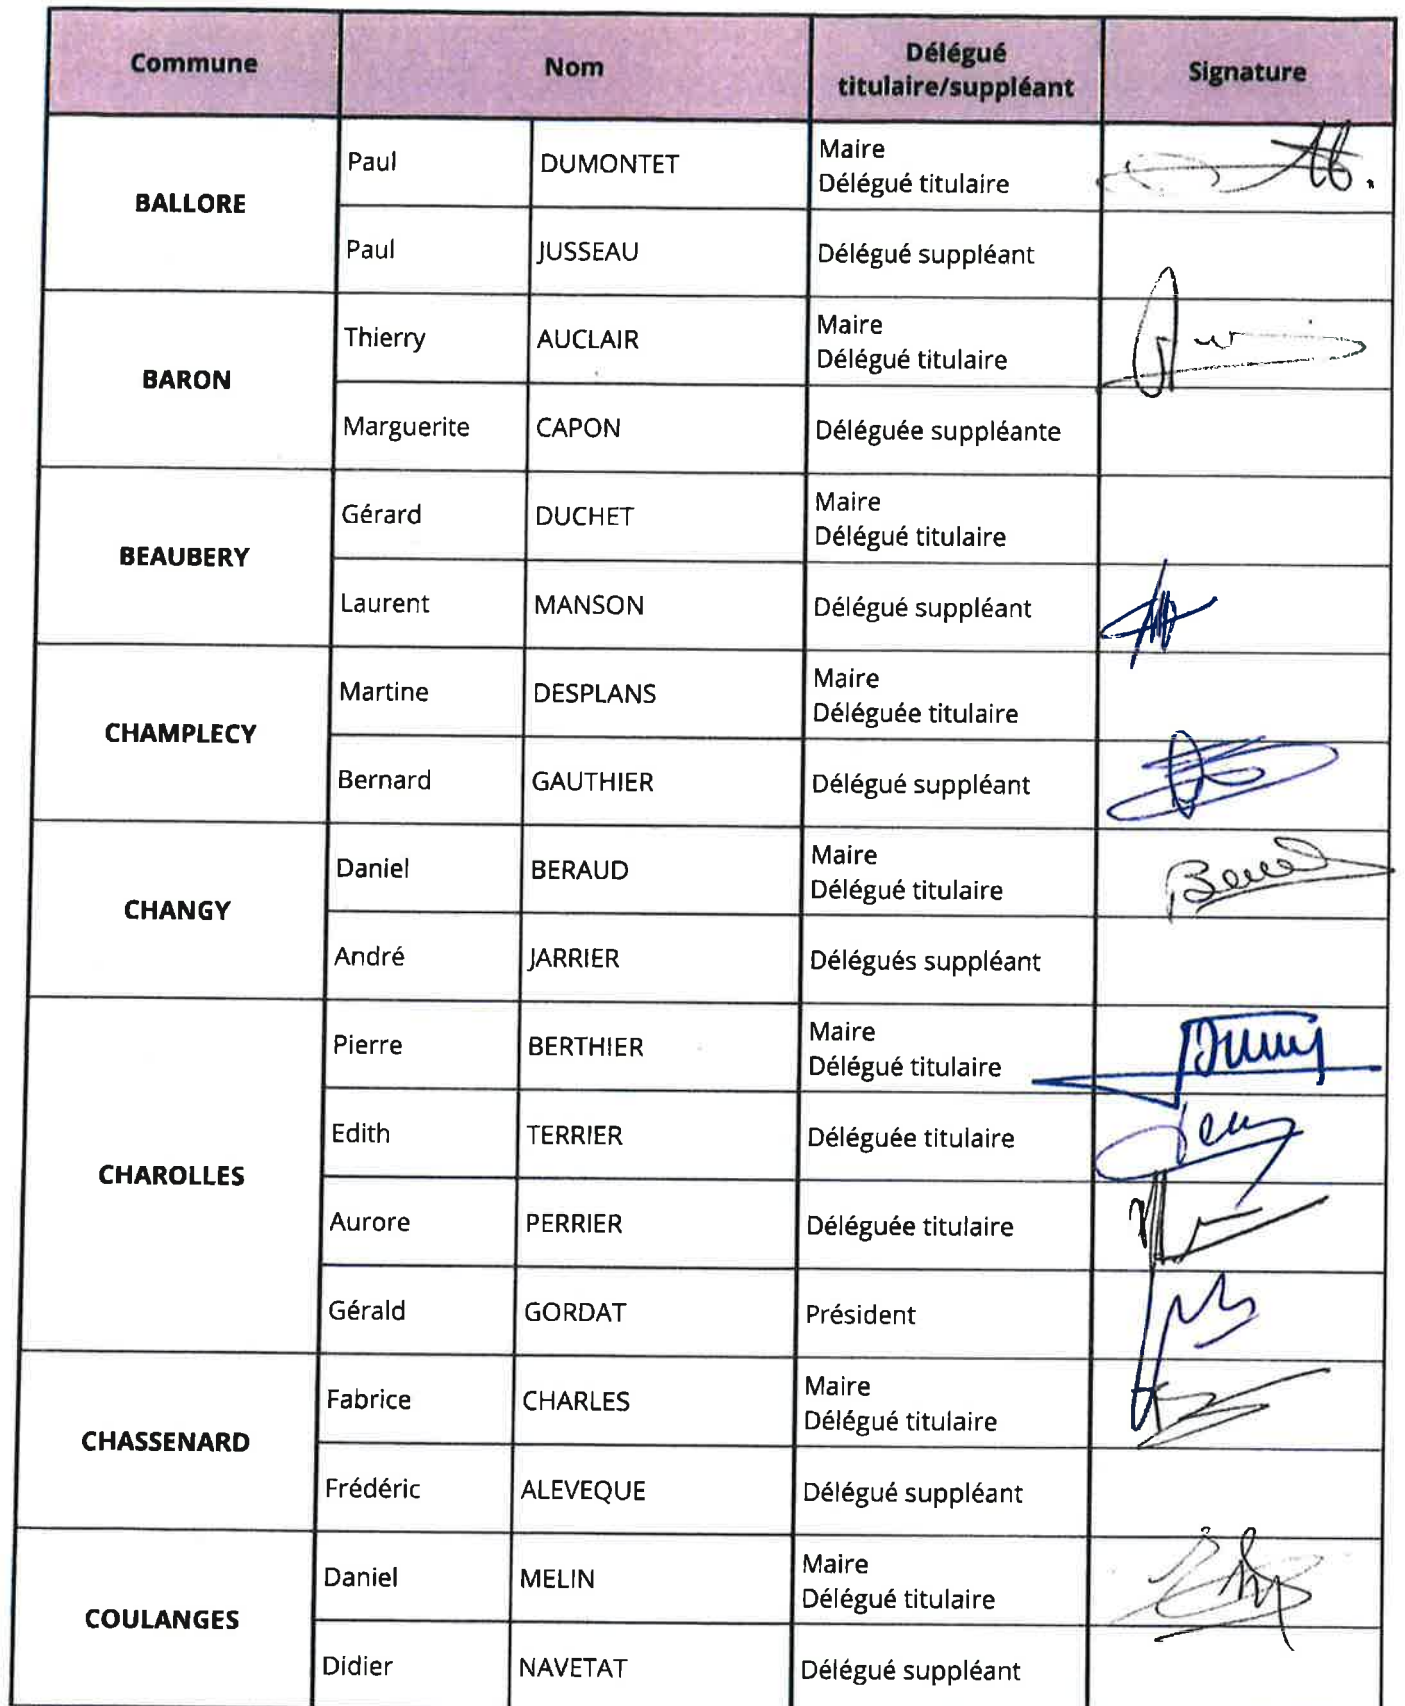 Commune
Nom
Délégué
titulaire/suppléant
Signature
BALLORE
Paul
DUMONTET
Maire
Délégué titulaire
Paul
JUSSEAU
Délégué suppléant
BARON
Thierry
AUCLAIR
Maire
Délégué titulaire
Marguerite
CAPON
Déléguée suppléante
BEAUBERY
Gérard
DUCHET
Maire
Délégué titulaire
Laurent
MANSON
Délégué suppléant
CHAMPLECY
Martine
DESPLANS
Maire
Déléguée titulaire
Bernard
GAUTHIER
Délégué suppléant
CHANGY
Daniel
BERAUD
Maire
Délégué titulaire
André
JARRIER
Délégués suppléant
CHAROLLES
Pierre
BERTHIER
Maire
Délégué titulaire
Edith
TERRIER
Déléguée titulaire
Aurore
PERRIER
Déléguée titulaire
Gérald
GORDAT
Président
CHASSENARD
Fabrice
CHARLES
Maire
Délégué titulaire
Frédéric
ALEVEQUE
Délégué suppléant
COULANGES
Daniel
MELIN
Maire
Délégué titulaire
Didier
NAVETAT
Délégué suppléant